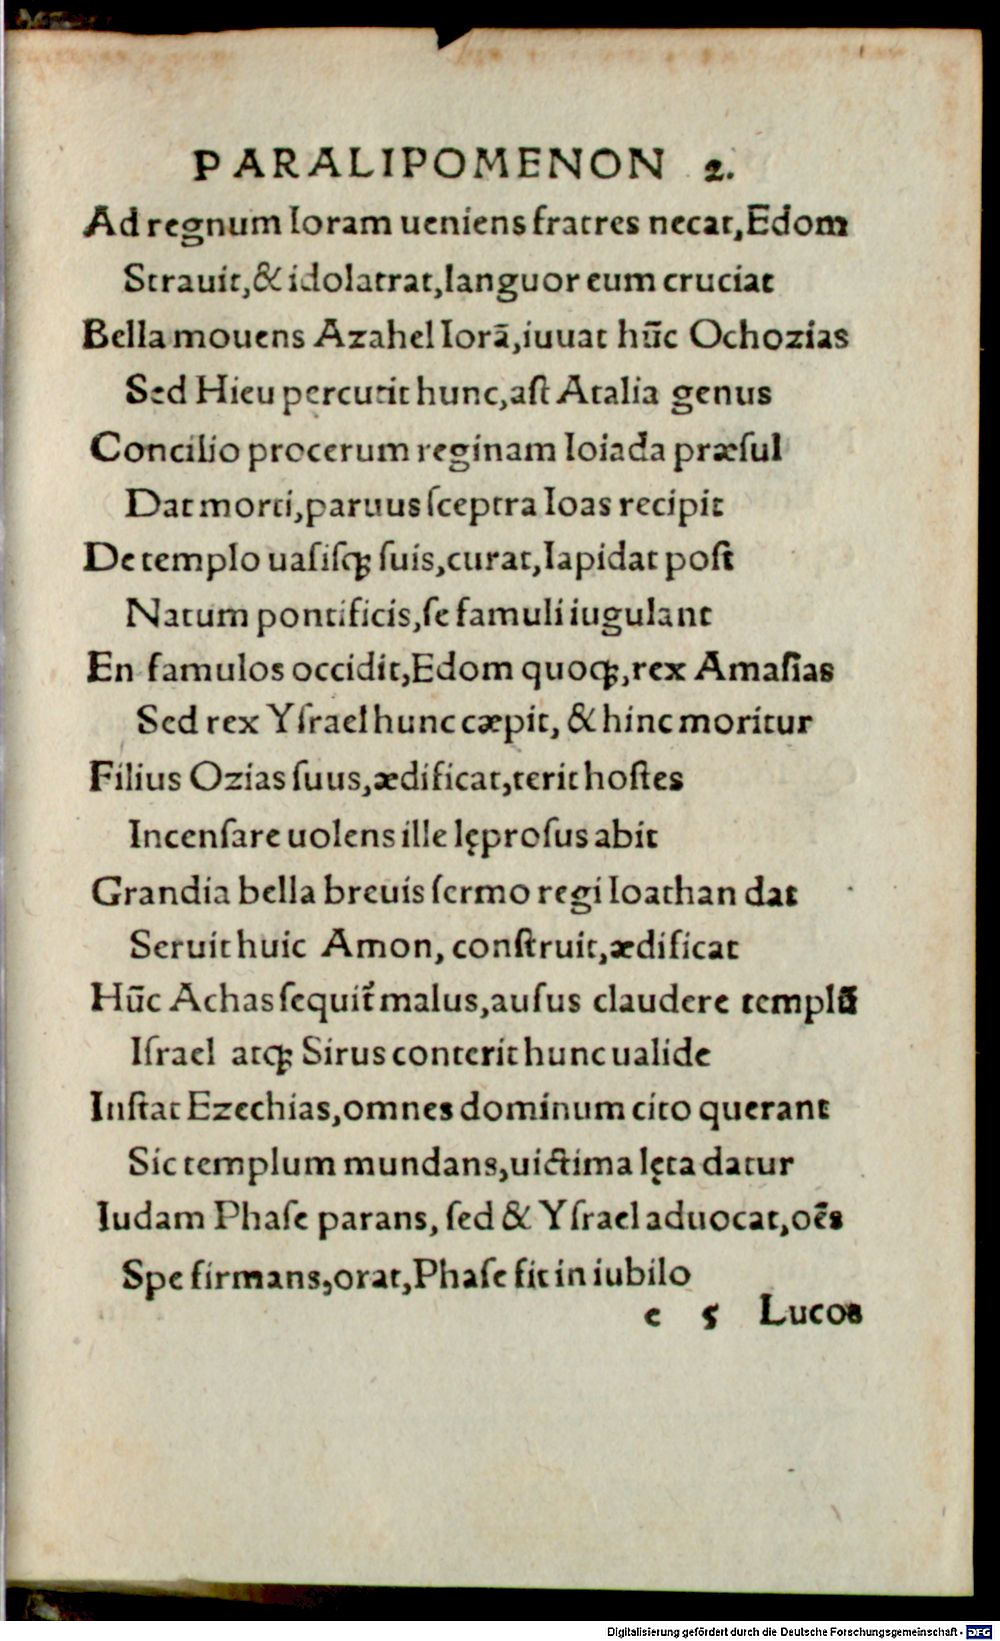 PARALIPOMENON 2.
Ad regnum Ioram ueniens fratres necat, Edom
Strauit, & idolatrat, languor eum cruciat
Bella mouens Azahel Iorā, iuuat hūc Ochozias
Sed Hieu percutit hunc, aſt Atalia genus
Concilio procerum reginam Ioiada præſul
Dat morti, paruus ſceptra Ioas recipit
De templo uasiſq; ſuis, curat, lapidat poſt
Natum pontificis, ſe famuli iugulant
En famulos occidit, Edom quoq;, rex Amaſias
Sed rex Yſrael hunc cæpit, & hinc moritur
Filius Ozias ſuus, ædificat, terit hoſtes
Incenſare uolens ille lęproſus abit
Grandia bella breuis ſermo regi Ioathan dat
Seruit huic Amon, conſtruit, ædificat
Hūc Achas ſequit᷑ malus, auſus claudere templū
Iſrael atq; Sirus conterit hunc ualide
Inſtat Ezechias, omnes dominum cito querant
Sic templum mundans, uictima lęta datur
Iudam Phaſe parans, ſed & Yſrael aduocat, oēs
Spe firmans, orat, Phaſe fit in iubilo
e 5 Lucos
Digitalisierung gefördert durch die Deutsche Forschungsgemeinschaft - DFG